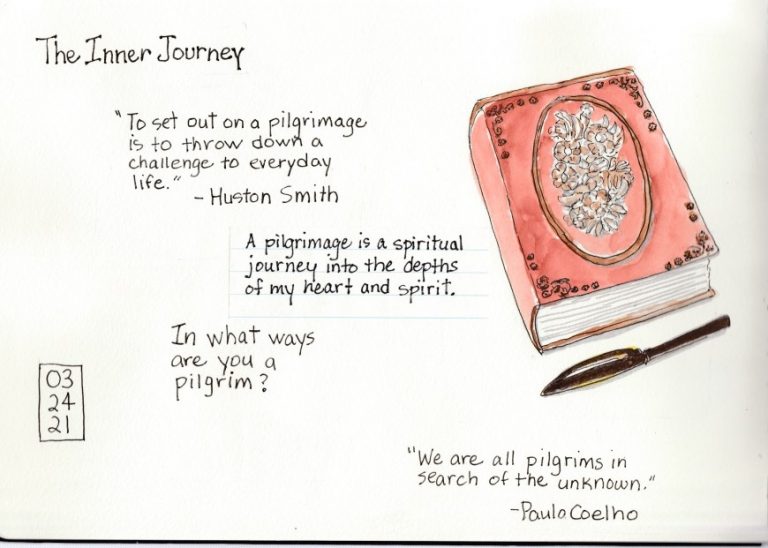 The Inner Journey
"To set out on a pilgrimage
is to throw down a
challenge to everyday
life."
- Huston Smith
A pilgrimage is a spiritual
journey into the depths
of my heart and spirit.
In what ways
are you a
pilgrim?
03
24
21
"We are all pilgrims in
search of the unknown."
-Paulo Coelho